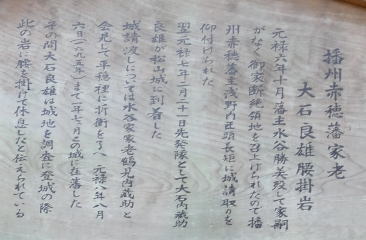 播州赤穂藩家老
大石良雄腰掛岩
元禄六年十月藩主水谷勝美歿して家嗣
がなく御家断絶領地を召上げられたので播
州赤穂藩主浅野内匠頭長矩に城請取りを
仰付けられた
翌元禄七年二月二十一日先発隊として大石内蔵助
良雄が松山城に到着した
城請渡しについては水谷家家老鶴見内蔵助と
会見して平穏裡に折衝を了へ元禄八年八月
六日(一六九五年)まで一年七ヶ月この城に在藩した
その間大石良雄は城地を調査に登城の際
此の岩に腰を掛けて休息したと伝えられている